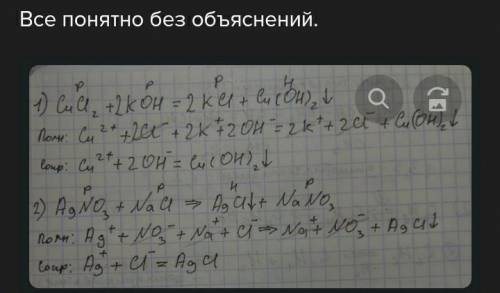 Все понятно без объяснений.
Р Р Р Н
1) CuCl₂ + 2KOH = 2KCl + Cu(OH)₂↓
Полн: Cu²⁺ + 2Cl⁻ + 2K⁺ + 2OH⁻ = 2K⁺ + 2Cl⁻ + Cu(OH)₂↓
Сокр: Cu²⁺ + 2OH⁻ = Cu(OH)₂↓
Р Р Н Р
2) AgNO₃ + NaCl ⇒ AgCl↓ + NaNO₃
Полн: Ag⁺ + NO₃⁻ + Na⁺ + Cl⁻ ⇒ Na⁺ + NO₃⁻ + AgCl↓
Сокр: Ag⁺ + Cl⁻ = AgCl